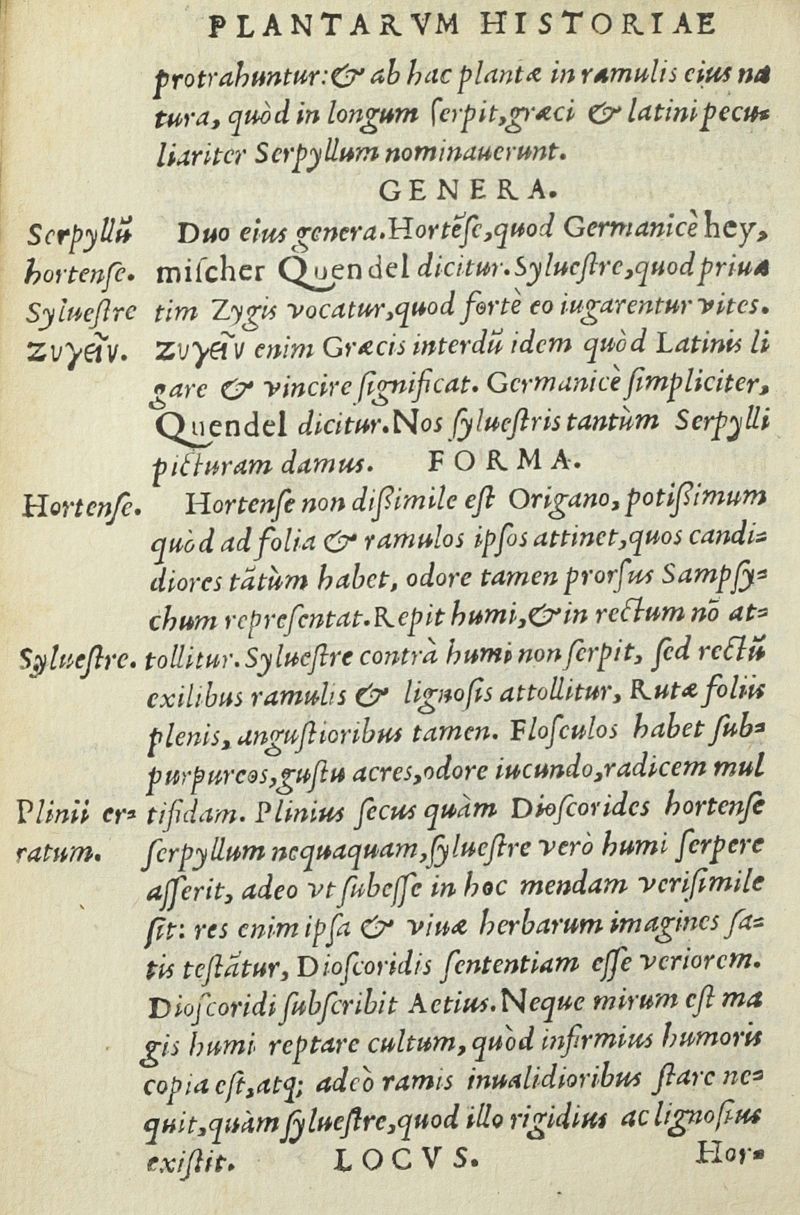 PLANTARVM HISTORIAE
protrahuntur:& ab hac planta in ramulis eius na
tura, quòd in longum ſerpit,græci & latini pecu⸗
liariter Serpyllum nominauerunt.
GENERA.
Serpyllū Duo eius genera.Hortēſe,quod Germanicè hey,
hortenſe. miſcher Quendel dicitur.Sylueſtre,quod priua
Sylueſtre tim Zygis vocatur,quod fortè eo iugarentur vites.
ζυγεῖν. ζυγεῖν enim Græcis interdū idem quòd Latinis li
gare & vincire ſignificat. Germanicè ſimpliciter,
Quendel dicitur.Nos ſylueſtris tantùm Serpylli
picturam damus. FORMA.
Hortenſe. Hortenſe non dißimile eſt Origano, potißimum
quòd ad folia & ramulos ipſos attinet,quos candi⸗
diores tātùm habet, odore tamen prorſus Sampſy⸗
chum repreſentat.Repit humi,&in rectum nō at⸗
Sylueſtre. tollitur.Sylueſtre contrà humi non ſerpit, ſed rectū
exilibus ramulis & lignoſis attollitur, Rutæ foliis
plenis, anguſtioribus tamen. Floſculos habet ſub⸗
purpureos,guſtu acres,odore iucundo,radicem mul
Plinii er⸗ tifidam. Plinius ſecus quàm Dioſcorides hortenſe
ratum. ſerpyllum nequaquam,ſylueſtre verò humi ſerpere
aſſerit, adeo vt ſubeſſe in hoc mendam veriſimile
ſit: res enim ipſa & viuæ herbarum imagines ſa⸗
tis teſtātur, Dioſcoridis ſententiam eſſe veriorem.
Dioſcoridi ſubſcribit Aetius.Neque mirum eſt ma
gis humi reptare cultum, quòd infirmius humoris
copia eſt,atq; adeò ramis inualidioribus ſtare ne⸗
quit,quàm ſylueſtre,quod illo rigidius ac lignoſius
exiſtit. LOCVS. Hor⸗